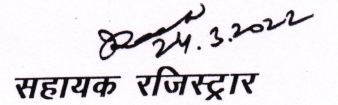 24.3.2022
सहायक रजिस्ट्रार